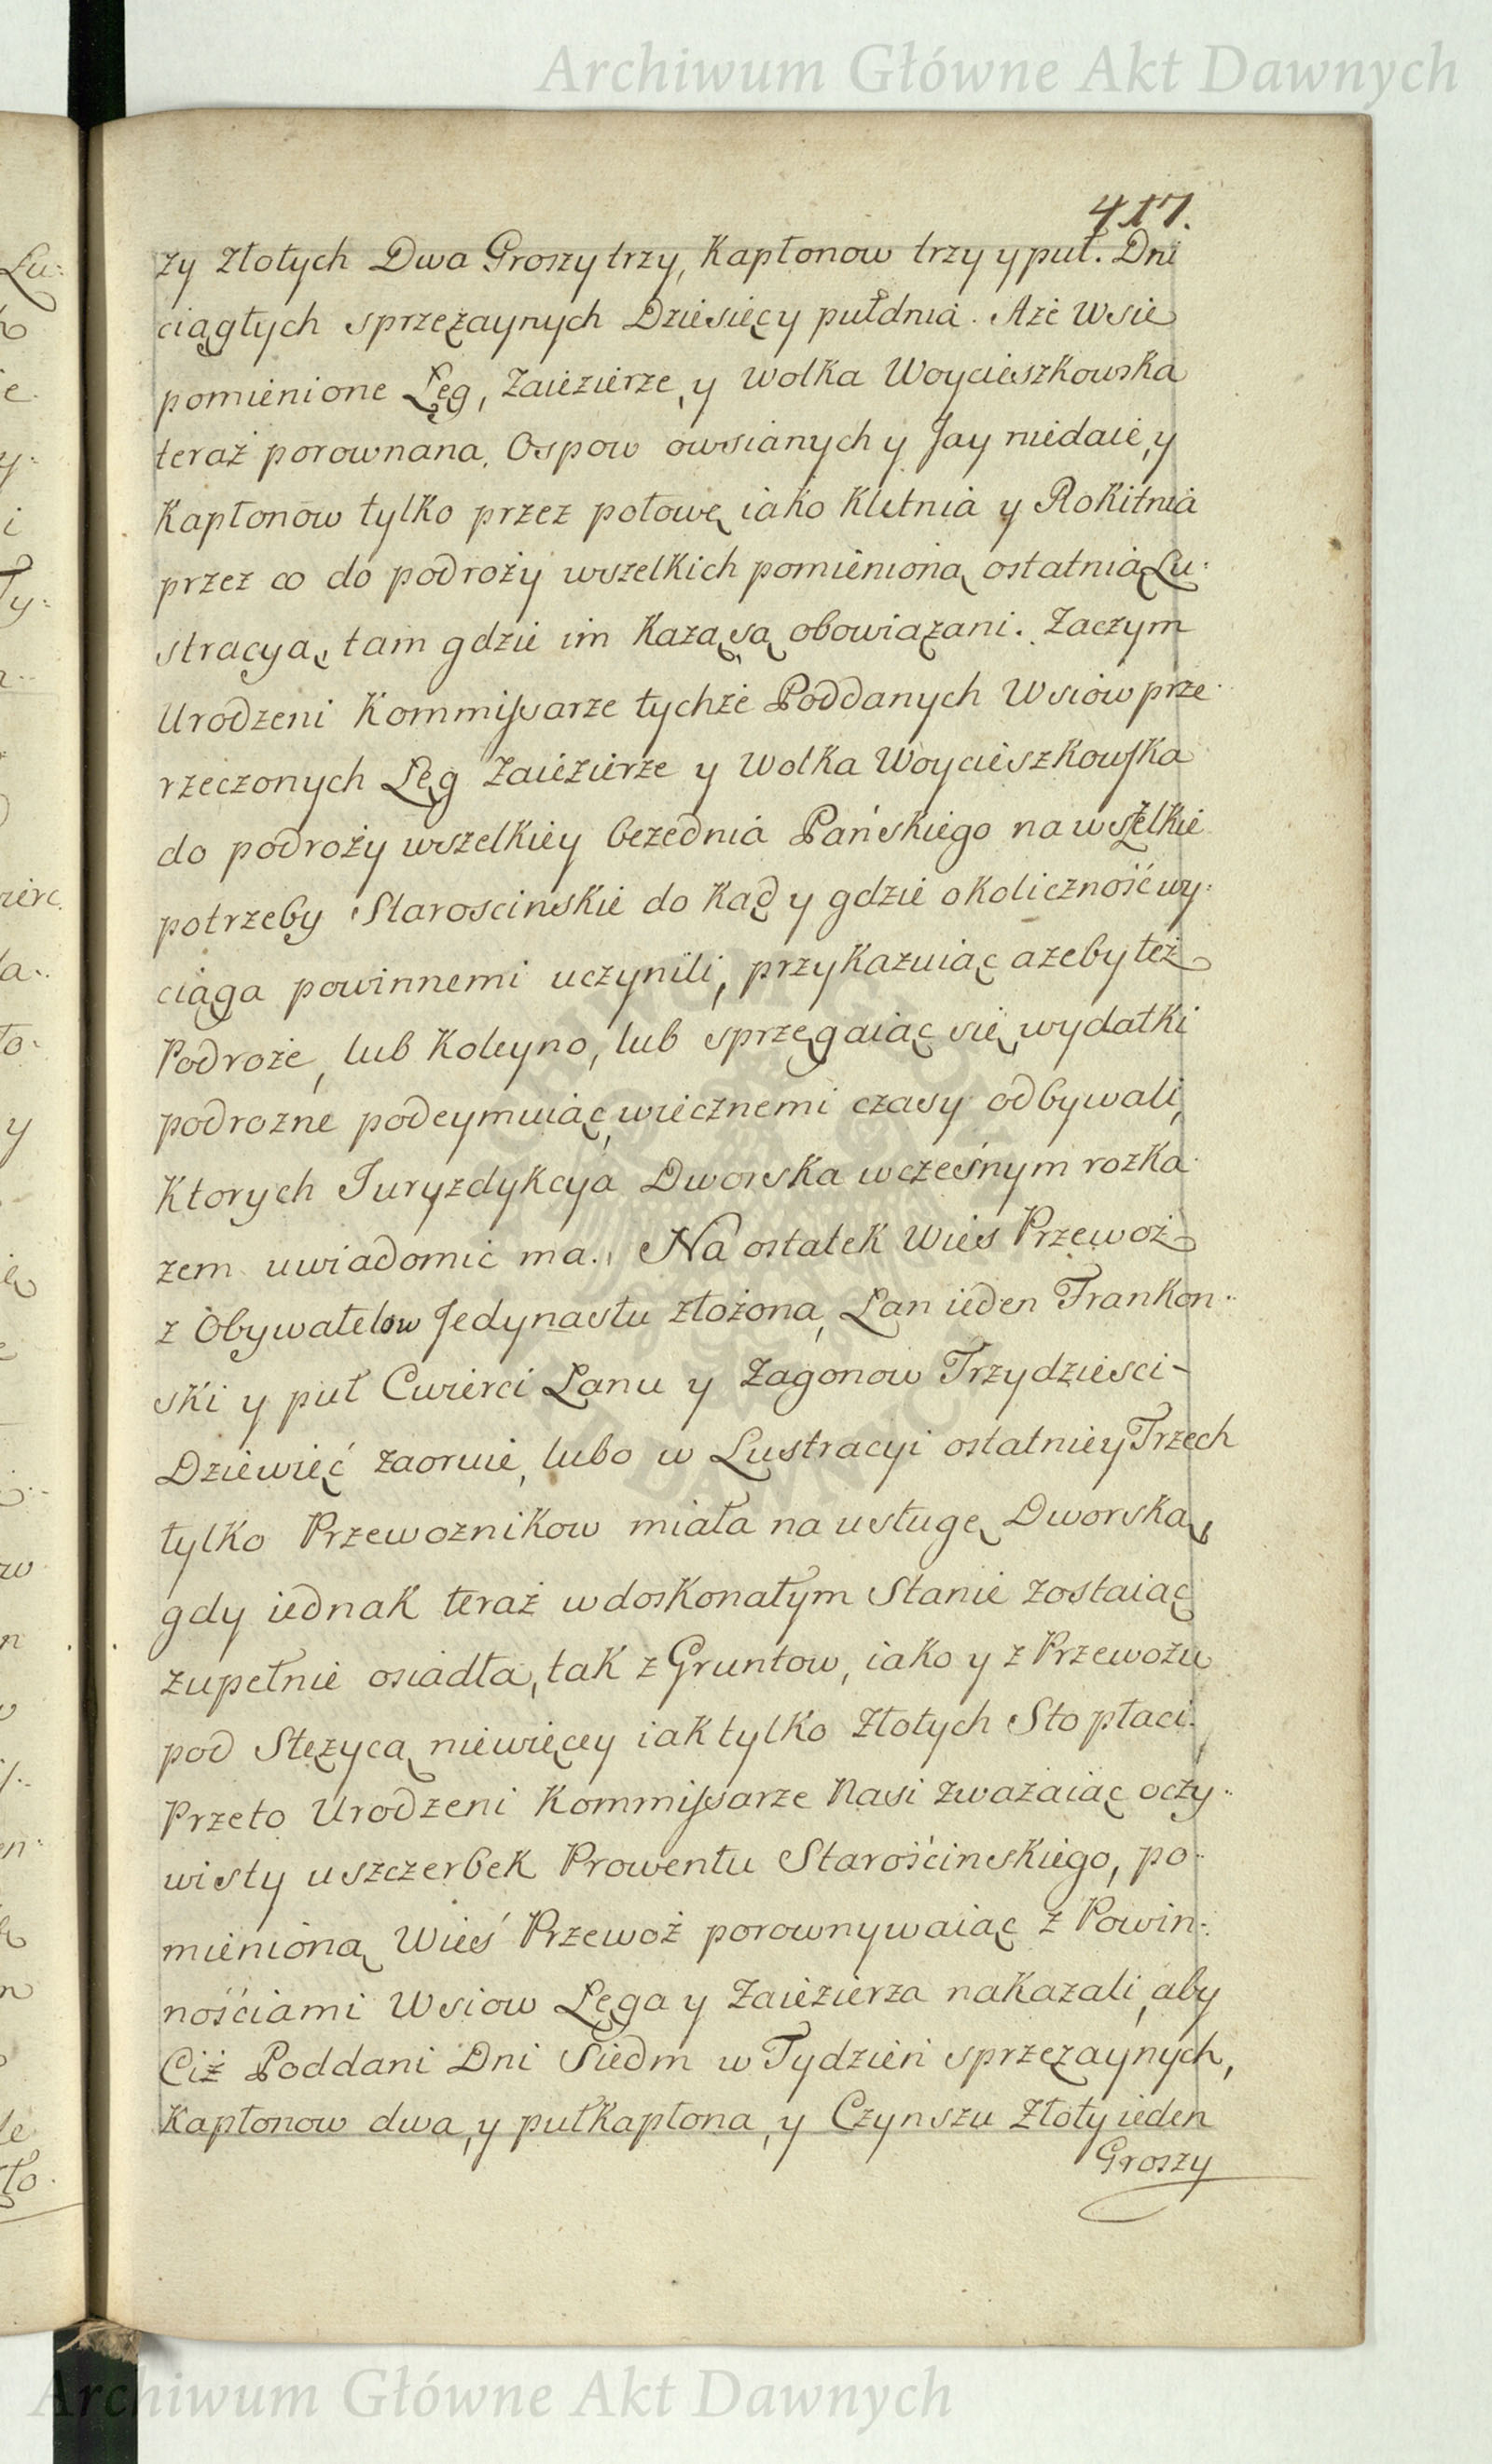 Archiwum Główne Akt Dawnych
417.
zy Złotych Dwa Groszy trzy, Kapłonow trzy y puł. Dni
ciągłych sprzężaynych Dziesięć y pułdnia. Aże Wsie
pomienione Łęg, Zaiezierze, y Wolka Woycieszkowska
teraż porownana. Ospow owsianych y Jay niedaie, y
Kapłonow tylko przez połowę iako Kletnia y Rokitnia
przez co do podroży wszelkich pomienioną ostatnią Lu:
stracyą, tam gdzie im Każą są obowiązani. Zaczym
Urodzeni Kommissarze tychże Poddanych Wsiow prze
rzeczonych Łęg Zaiezierze y Wolka Woycieszkowska
do podroży wszelkiey bezednia Pańskiego na wszelkie
potrzeby Staroscinskie do Kąd y gdzie okoliczność wy:
ciąga powinnemi uczynili, przykazuiąc ażeby też
Podroże, lub Koleyno, lub sprzęgaiąc się, wydatki
podrozne podeymuiąc, wiecznemi czasy odbywali,
Ktorych Juryzdykcya Dworska wczesnym rozka
zem uwiadomić ma. Na ostatek Wies Przewoż
z Obywatelow Jedynastu złożona, Łan ieden Frankon:
ski y puł Cwierci Łanu y Zagonow Trzydziesci-
Dziewięć zaoruie, lubo w Lustracyi ostatniey Trzech
tylko Przewoznikow miała na usługę Dworską,
gdy iednak teraż w doskonałym Stanie zostaiąc
zupełnie osiadła, tak z Gruntow, iako y z Przewozu
pod Stężycą niewięcey iak tylko Złotych Sto płaci.
Przeto Urodzeni Kommissarze Nasi zważaiąc oczy:
wisty uszczerbek Prowentu Starościnskiego, po
mienioną Wieś Przewoż porownywaiąc z Powin:
nościami Wsiow Łęga y Zaiezierza nakazali, aby
Ciż Poddani Dni Siedm w Tydzień sprzężaynych,
Kapłonow dwa, y pułkapłona, y Czynszu Złoty ieden
Groszy
Archiwum Główne Akt Dawnych